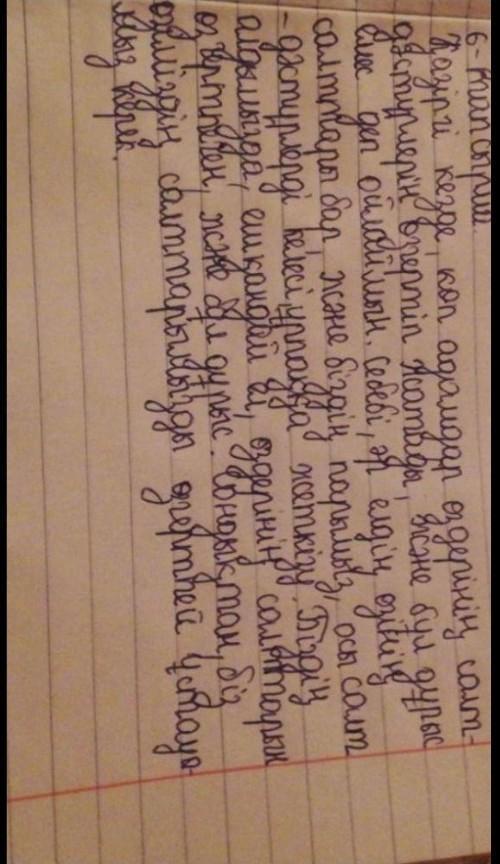 6-тапсырма.
Қазіргі кезде, көп адамдар өздерінің салт-
дәстүрлерін өзгертіп жатады, және бұл дұрыс
емес деп ойлаймын. Себебі, әр елдің өзінің
салттары бар және біздің парызымыз, осы салт
-дәстүрлерді келесі ұрпаққа жеткізу. Біздің
алдымызда, ешқандай ел, өздерінің салттарын
өзгертпеген, және бұл дұрыс. Сондықтан, біз
өзіміздің салттарымызды өзгертпей ұстауы-
мыз керек.